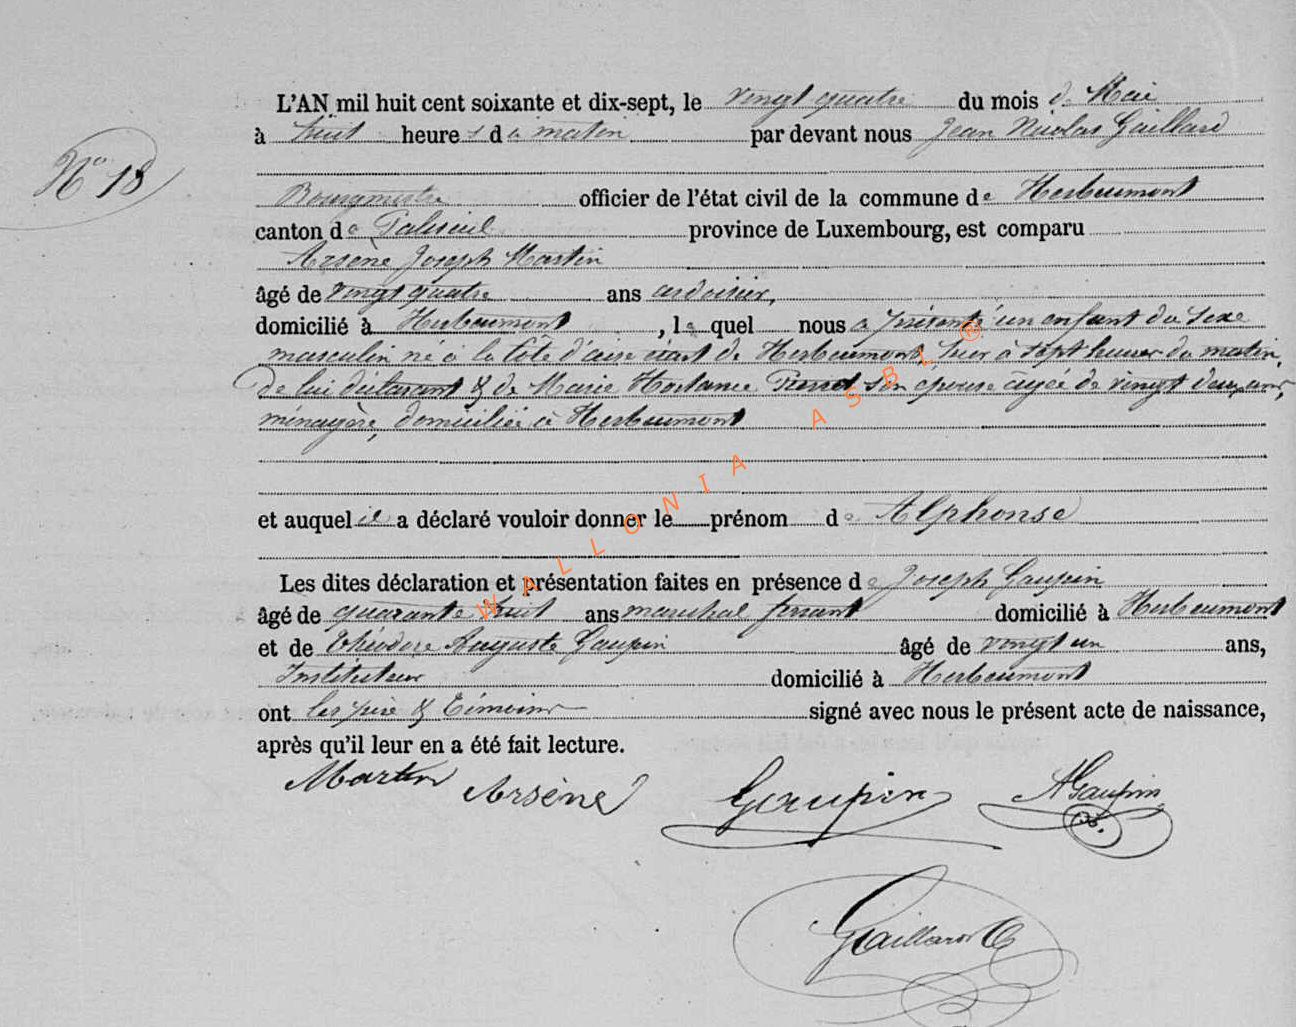 L'AN mil huit cent soixante et dix-sept, le vingt quatre du mois de Mai
à huit heures du matin par devant nous Jean Nicolas Gaillard
N° 18
Bourgmestre officier de l'état civil de la commune de Herbeumont
canton de Paliseul province de Luxembourg, est comparu
Arsène Joseph Martin
âgé de vingt quatre ans ardoisier,
domicilié à Herbeumont, lequel nous a présenté un enfant du sexe
masculin né à la Côte d'aise écart de Herbeumont, hier à sept heures du matin,
de lui déclarant & de Marie Hortance son épouse âgée de vingt deux ans,
ménagère, domiciliée à Herbeumont
et auquel il a déclaré vouloir donner le prénom de Alphonse
Les dites déclaration et présentation faites en présence de Joseph Gaupin
âgé de quarante huit ans maréchal ferrant domicilié à Herbeumont
et de Théodore Auguste Gaupin âgé de vingt un ans,
Instituteur domicilié à Herbeumont
ont les père & témoins signé avec nous le présent acte de naissance,
après qu'il leur en a été fait lecture.
Martin Arsène Gaupin AGaupin
Gaillard
WALLONIA ASBL ®